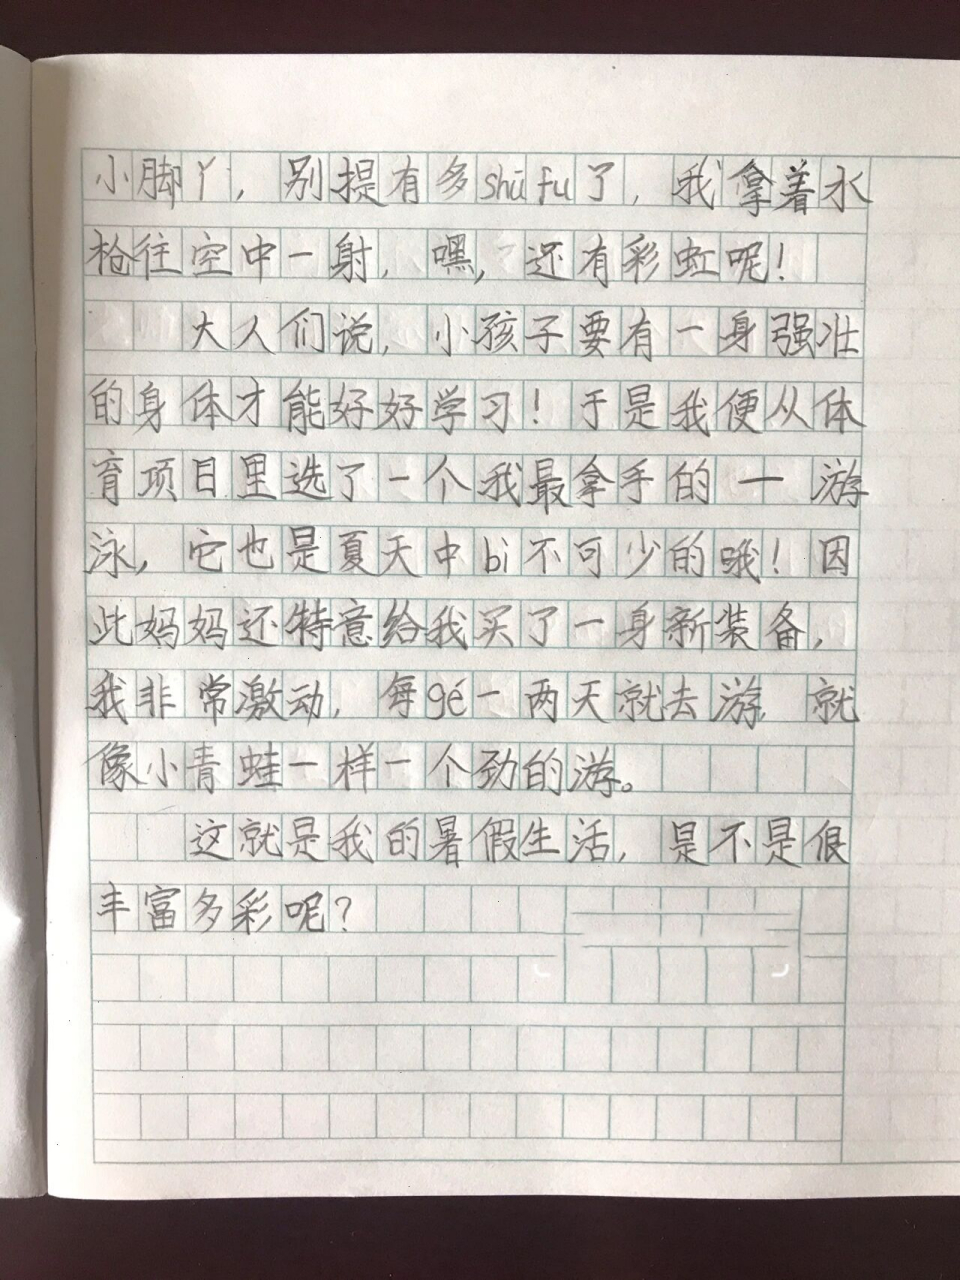 小脚丫，别提有多shūfu了，我拿着水
枪往空中一射，嘿，还有彩虹呢！
大人们说，小孩子要有一身强壮
的身体才能好好学习！于是我便从体
育项目里选了一个我最拿手的—游
泳，它也是夏天中bì不可少的哦！因
此妈妈还特意给我买了一身新装备，
我非常激动，每gé一两天就去游，就
像小青蛙一样一个劲的游。
这就是我的暑假生活，是不是很
丰富多彩呢？